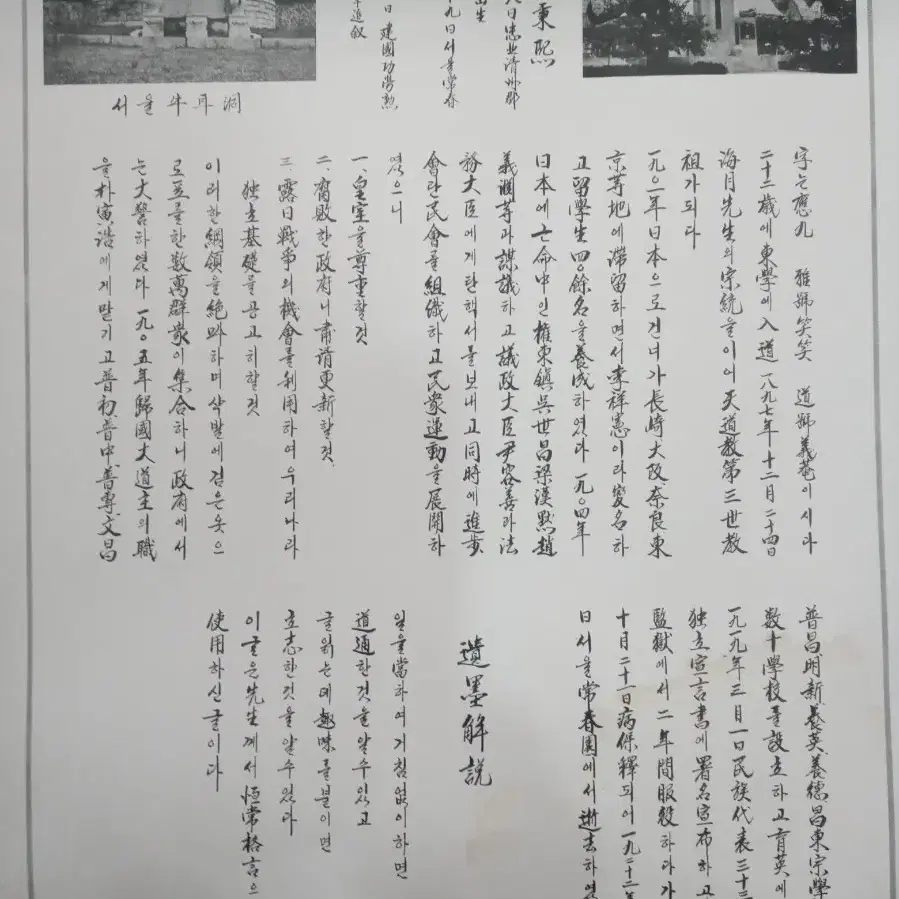 秉熙
八日忠北淸州郡
出生
九日서울常春
日 建國功勞勳
追叙
서울牛耳洞
字는應九 雅號笑笑 道號義菴이시라
二十二歲에東學에入道 一八九七年十二月二十四日
海月先生의宗統을이어天道敎第三世敎
祖가되다
一九〇一年日本으로건너가長崎大阪奈良東
京等地에滯留하면서李祥憲이라變名하
고留學生四〇餘名을養成하였다 一九〇四年
日本에亡命中인權東鎭吳世昌梁漢默趙
義淵等과謀議하고議政大臣尹容善과法
務大臣에게탄핵서를보내고同時에進步
會란民會를組織하고民衆運動을展開하
였으니
一. 皇室을尊重할것
二. 腐敗한政府니肅淸更新할것
三. 露日戰爭의機會를利用하여우리나라
独立基礎를공고히할것
이러한綱領을絶叫하며삭발에검은옷으
로표를한數萬群衆이集合하니政府에서
는大驚하였다 一九〇五年歸國大道主의職
을朴寅浩에게맡기고普初普中普專文昌
普昌明新養英養德昌東宗學
數十學校를設立하고育英에
一九一九年三月一日民族代表三十三
独立宣言書에署名宣布하고
監獄에서二年間服役하다가
十月二十二日病保釋되어一九二二年
日서울常春園에서逝去하였
遺墨解說
일을當하여거침없이하면
道通한것을알수있고
글읽는데趣味를붙이면
立志한것을알수있다
이글은先生께서恒常格言으
使用하신글이다